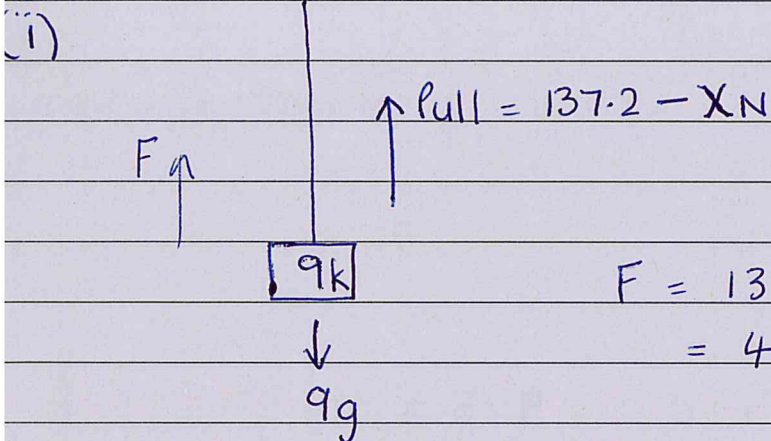 (i)
Pull = 137.2 - XN
F
9k
F = 13
= 4
9g